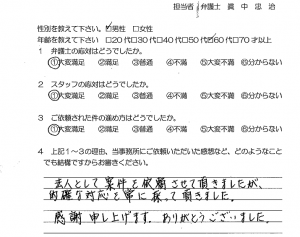 担当者 弁護士 眞中忠治
性別を教えて下さい。☑男性 □女性
年齢を教えて下さい □20代□30代□40代□50代☑60代□70才以上
1 弁護士の応対はどうでしたか。
①大変満足 ②満足 ③普通 ④不満 ⑤大変不満 ⑥分からない
2 スタッフの応対はどうでしたか。
①大変満足 ②満足 ③普通 ④不満 ⑤大変不満 ⑥分からない
3 ご依頼された件の進め方はどうでしたか。
①大変満足 ②満足 ③普通 ④不満 ⑤大変不満 ⑥分からない
4 上記1～3の理由、当事務所にご依頼いただいた感想など、どのようなこと
でも結構ですからお書きください。
法人として案件を依頼させて頂きましたが、
的確な対応を常に採って頂きました。
感謝申し上げます。ありがとうございました。